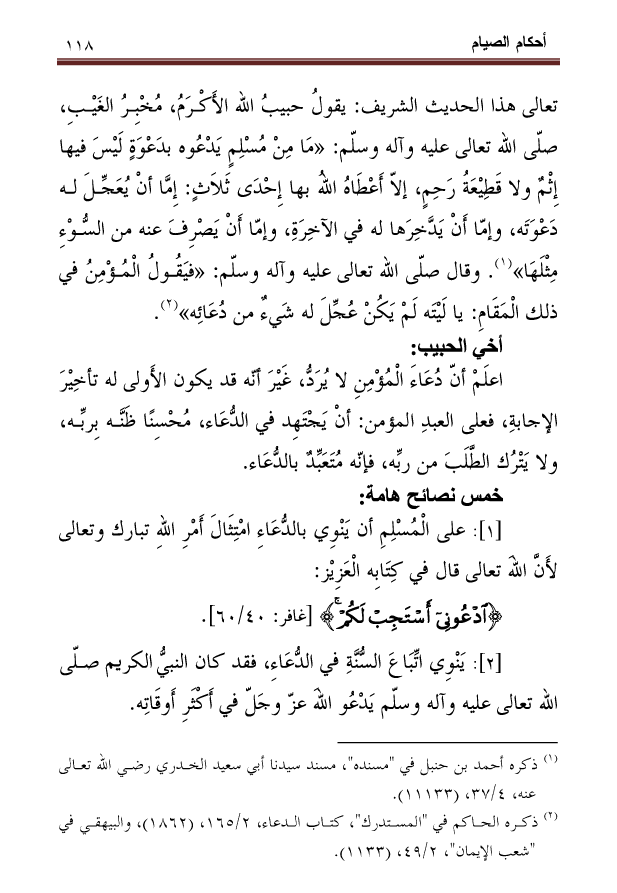 أحكام الصيام
١١٨
تعالى هذا الحديث الشريف: يقولُ حبيبُ الله الأَكْرَمُ، مُخْبِرُ الغَيْبِ،
صلّى الله تعالى عليه وآله وسلّم: «مَا مِنْ مُسْلِمٍ يَدْعُوه بدَعْوَةٍ لَيْسَ فيها
إِثْمٌ ولا قَطِيْعَةُ رَحِمٍ، إلاّ أَعْطَاهُ اللهُ بها إِحْدَى ثَلاَثٍ: إِمَّا أنْ يُعَجِّلَ له
دَعْوَتَه، وإمّا أَنْ يَدَّخِرَها له في الآخِرَةِ، وإمّا أَنْ يَصْرِفَ عنه من السُّوْءِ
مِثْلَهَا»(١). وقال صلّى الله تعالى عليه وآله وسلّم: «فَيَقُولُ الْمُؤْمِنُ في
ذلك الْمَقَامِ: يا لَيْتَه لَمْ يَكُنْ عُجِّلَ له شَيءٌ من دُعَائِه»(٢).
أخي الحبيب:
اعلَمْ أنّ دُعَاءَ الْمُؤْمِنِ لا يُرَدُّ، غَيْرَ أنّه قد يكون الأَولى له تأخِيْرَ
الإجابةِ، فعلى العبدِ المؤمن: أنْ يَجْتَهِد في الدُّعَاء، مُحْسِنًا ظَنَّه بربِّه،
ولا يَتْرُك الطَّلَبَ من ربِّه، فإنّه مُتَعَبِّدٌ بالدُّعَاء.
خمس نصائح هامة:
[١]: على الْمُسْلِمِ أن يَنْوِي بالدُّعَاءِ امْتِثَالَ أَمْرِ اللهِ تبارك وتعالى
لأَنَّ اللهَ تعالى قال في كِتَابِه الْعَزِيْز:
﴿ٱدۡعُونِيٓ أَسۡتَجِبۡ لَكُمۡۚ﴾ [غافر: ٦٠/٤٠].
[٢]: يَنْوِي اتِّبَاعَ السُّنَّةِ في الدُّعَاءِ، فقد كان النبيُّ الكريم صلّى
الله تعالى عليه وآله وسلّم يَدْعُو اللهَ عزّ وجَلّ في أَكْثَرِ أَوقَاتِه.
(١) ذكره أحمد بن حنبل في "مسنده"، مسند سيدنا أبي سعيد الخدري رضي الله تعالى
عنه، ٣٧/٤، (١١١٣٣).
(٢) ذكره الحاكم في "المستدرك"، كتاب الدعاء، ١٦٥/٢، (١٨٦٢)، والبيهقي في
"شعب الإيمان"، ٤٩/٢، (١١٣٣).